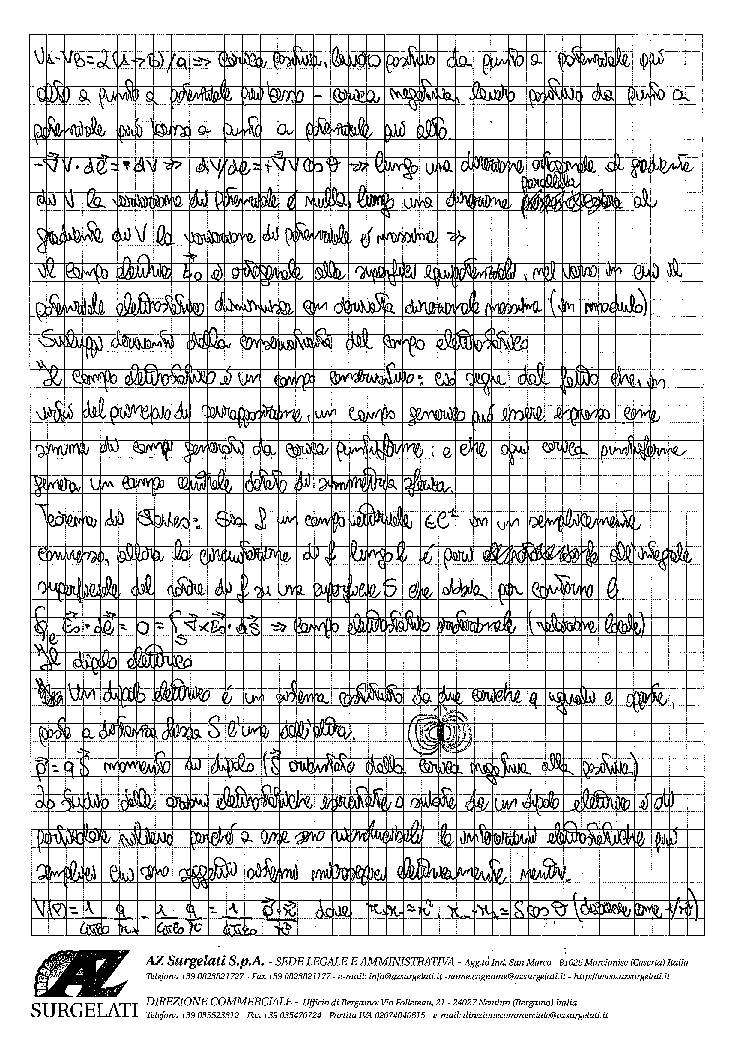 VA-VB=L(A→B)/q => carica positiva, lavoro positivo da punto a potenziale più
alto a punto a potenziale più basso - carica negativa, lavoro positivo da punto a
potenziale più basso a punto a potenziale più alto.
-∇V·dl=-dV => dV/dl=+∇V cosθ => lungo una direzione ortogonale al gradiente
di V la variazione di potenziale è nulla, lungo una direzione parallela al
gradiente di V la variazione di potenziale è massima =>
il campo elettrico E0 è ortogonale alle superfici equipotenziali, nel verso in cui il
potenziale elettrostatico diminuisce con derivata direzionale massima (in modulo)
Sviluppi derivanti dalla conservatività del campo elettrostatico
Il campo elettrostatico è un campo conservativo: ciò segue dal fatto che, in
virtù del principio di sovrapposizione, un campo generico può essere espresso come
somma di campi generati da carica puntiforme; e che ogni carica puntiforme
genera un campo centrale dotato di simmetria sferica.
Teorema di Stokes: Sia f un campo vettoriale ∈C¹ in un semplicemente
connesso, allora la circuitazione di f lungo l è pari all'integrale
superficiale del rotore di f su una superficie S che abbia per contorno l
∮l E0·dl = 0 = ∫S ∇×E0·dS => campo elettrostatico irrotazionale (relazione locale)
Il dipolo elettrico
Un dipolo elettrico è un sistema costituito da due cariche q uguali e opposte,
poste a distanza fissa δ l'una dall'altra.
p = q δ momento di dipolo (δ orientato dalla carica negativa alla positiva)
Lo studio delle azioni elettrostatiche esercitate o subite da un dipolo elettrico è di
particolare rilievo perché a esse sono riconducibili le interazioni elettrostatiche più
semplici cui sono soggetti sistemi microscopici elettricamente neutri.
V(P)= 1/4πε0 q/r+ - 1/4πε0 q/r- = 1/4πε0 p·r/r³ dove r+r-≈r², r- - r+≈δ cosθ
AZ Surgelati S.p.A. - SEDE LEGALE E AMMINISTRATIVA - Aggl.to Ind. San Marco - 81025 Marcianise (Caserta) Italia
Telefono +39 0823821727 - Fax +39 0823821177 - e-mail: info@azsurgelati.it - nome.cognome@azsurgelati.it - http://www.azsurgelati.it
AZ
SURGELATI
DIREZIONE COMMERCIALE - Ufficio di Bergamo: Via Follereau, 21 - 24027 Nembro (Bergamo) Italia